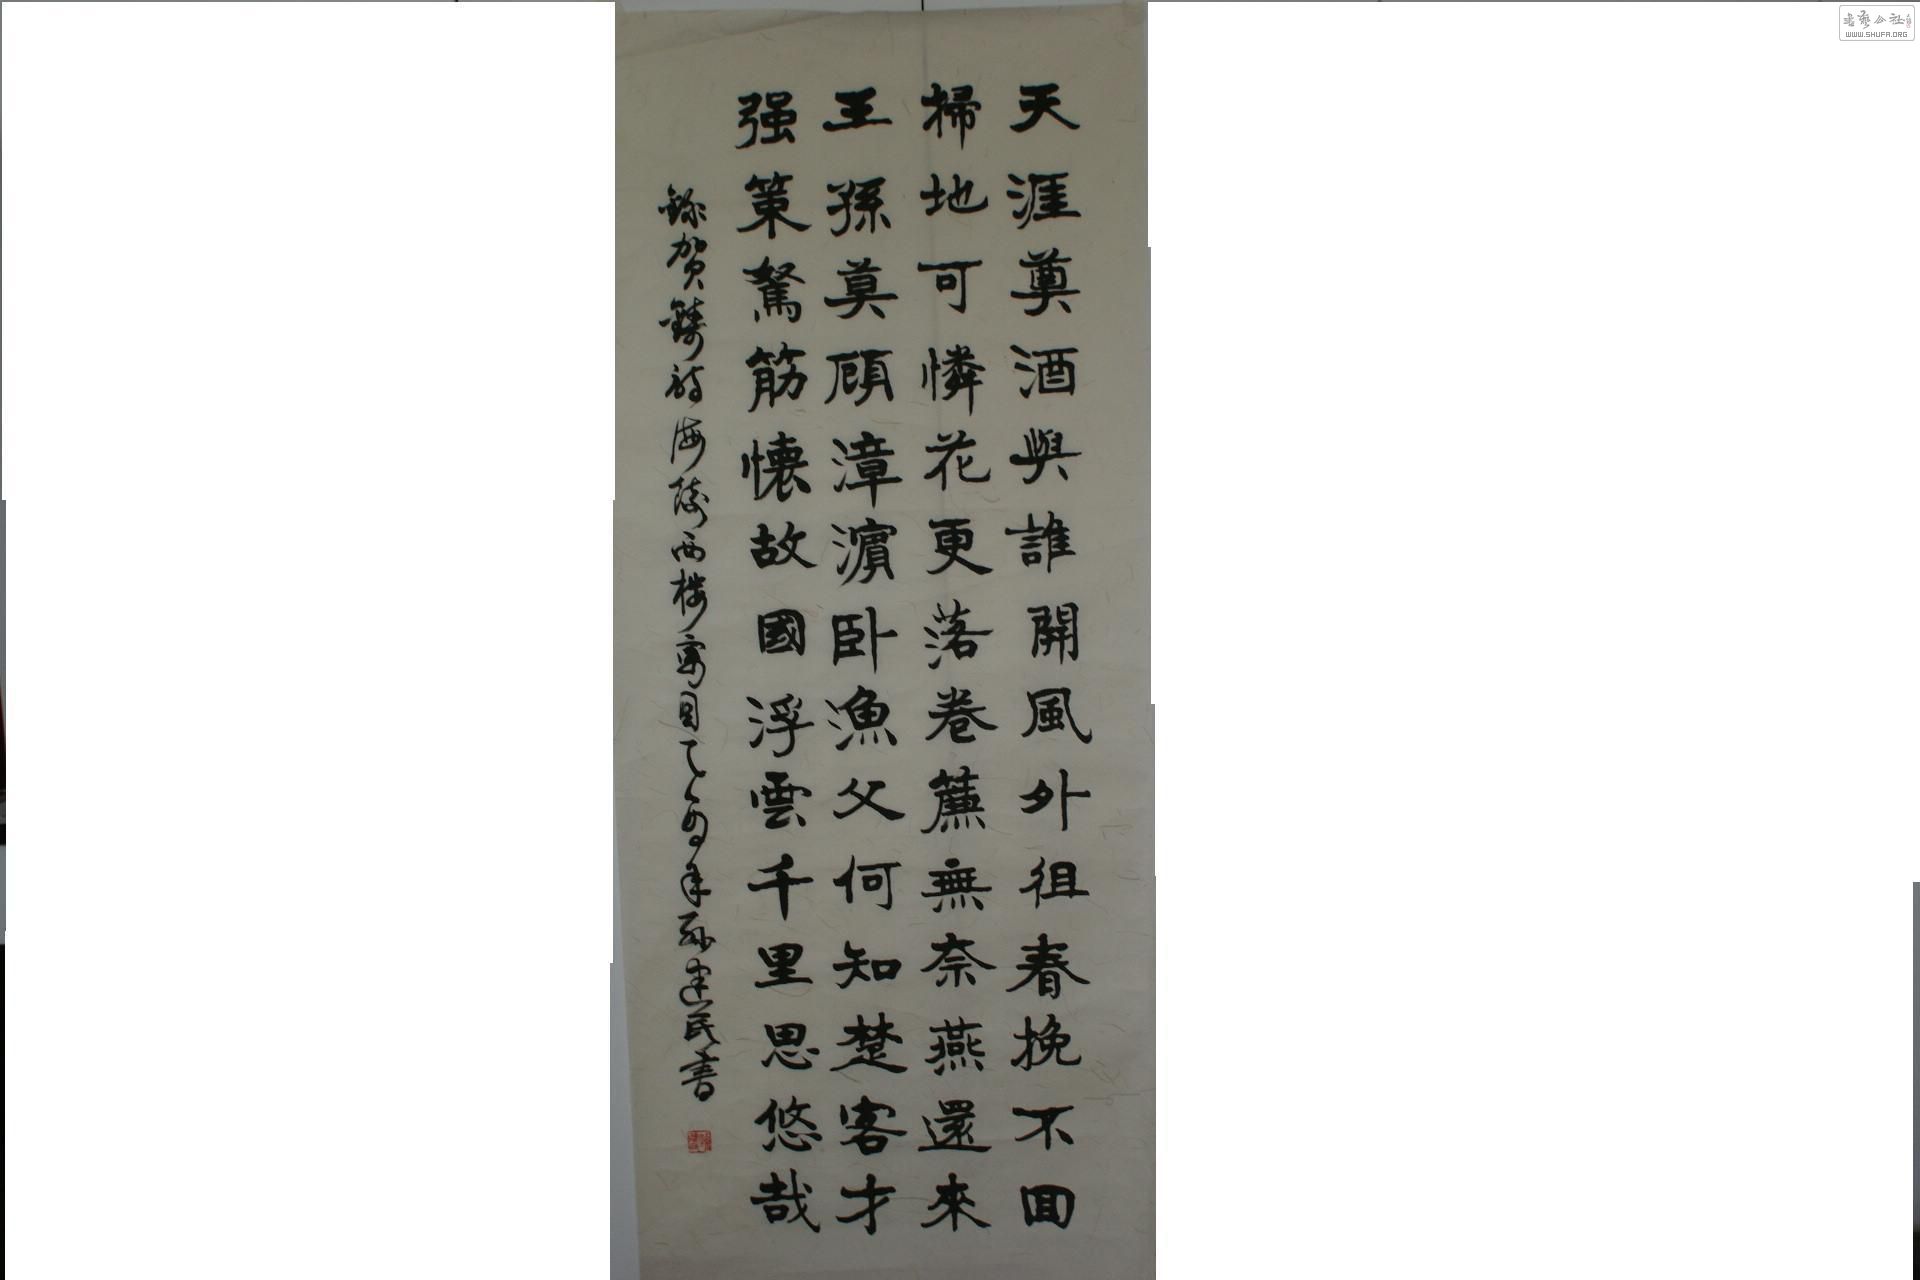 天涯奠酒與誰開風外徂春挽不回
掃地可憐花更落卷簾無奈燕還來
王孫莫顧漳濱卧漁父何知楚客才
强策駑筋懷故國浮雲千里思悠哉
錄賀鑄詩海陵西樓寓目乙酉年孫建民書
書藝公社
WWW.SHUFA.ORG